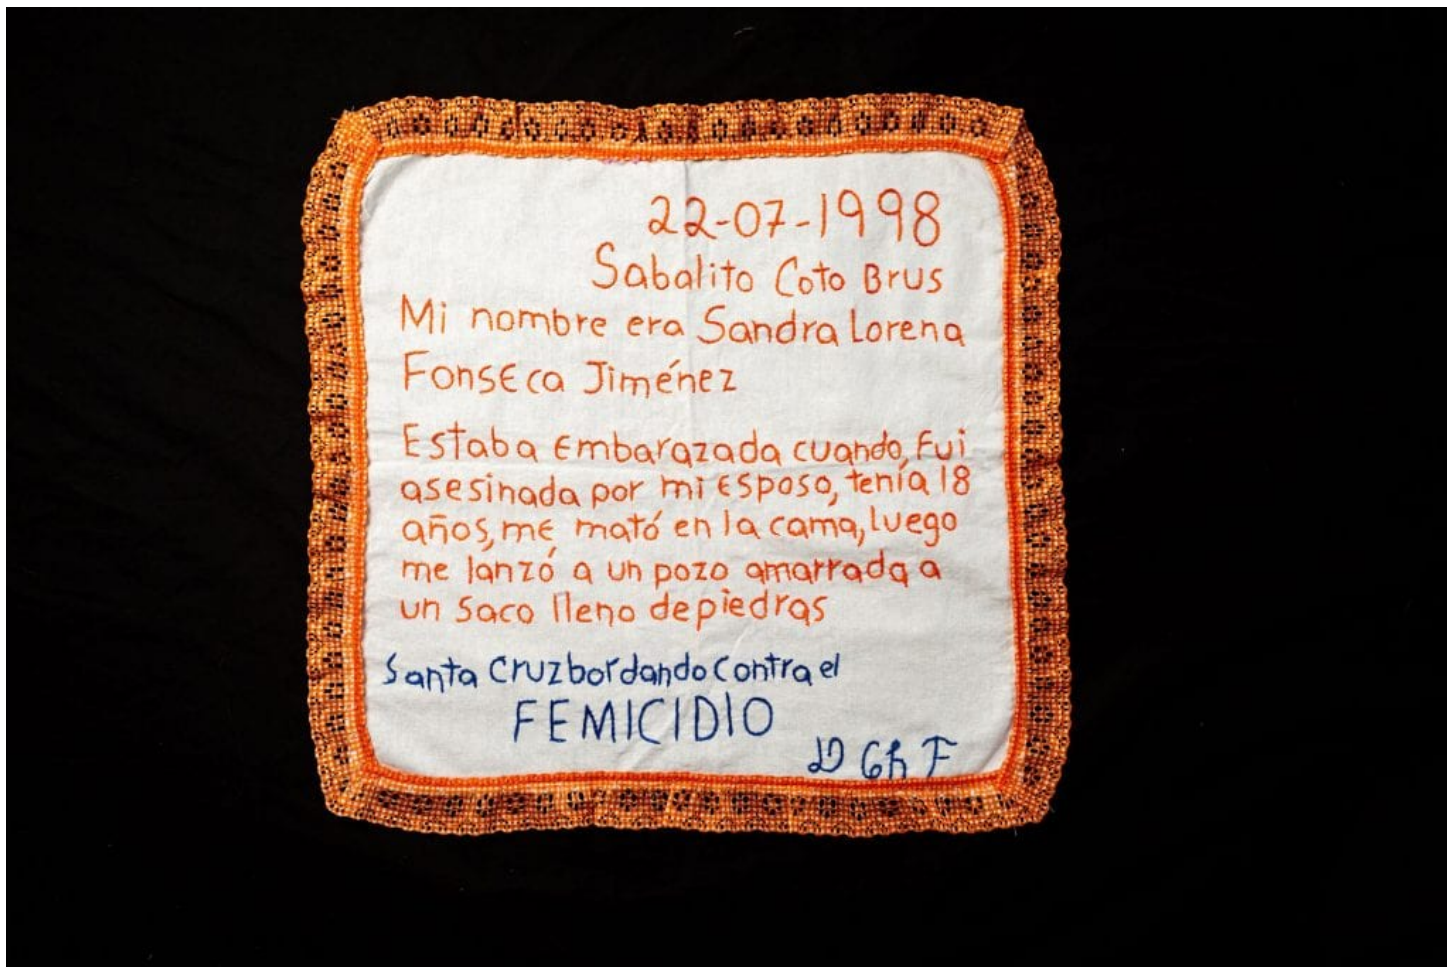 22-07-1998
Sabalito Coto Brus
Mi nombre era Sandra Lorena
Fonseca Jiménez
Estaba embarazada cuando, fui
asesinada por mi esposo, tenía 18
años, me mató en la cama, luego
me lanzó a un pozo amarrada a
un saco lleno de piedras
Santa Cruz bordando contra el
FEMICIDIO
D Gh F